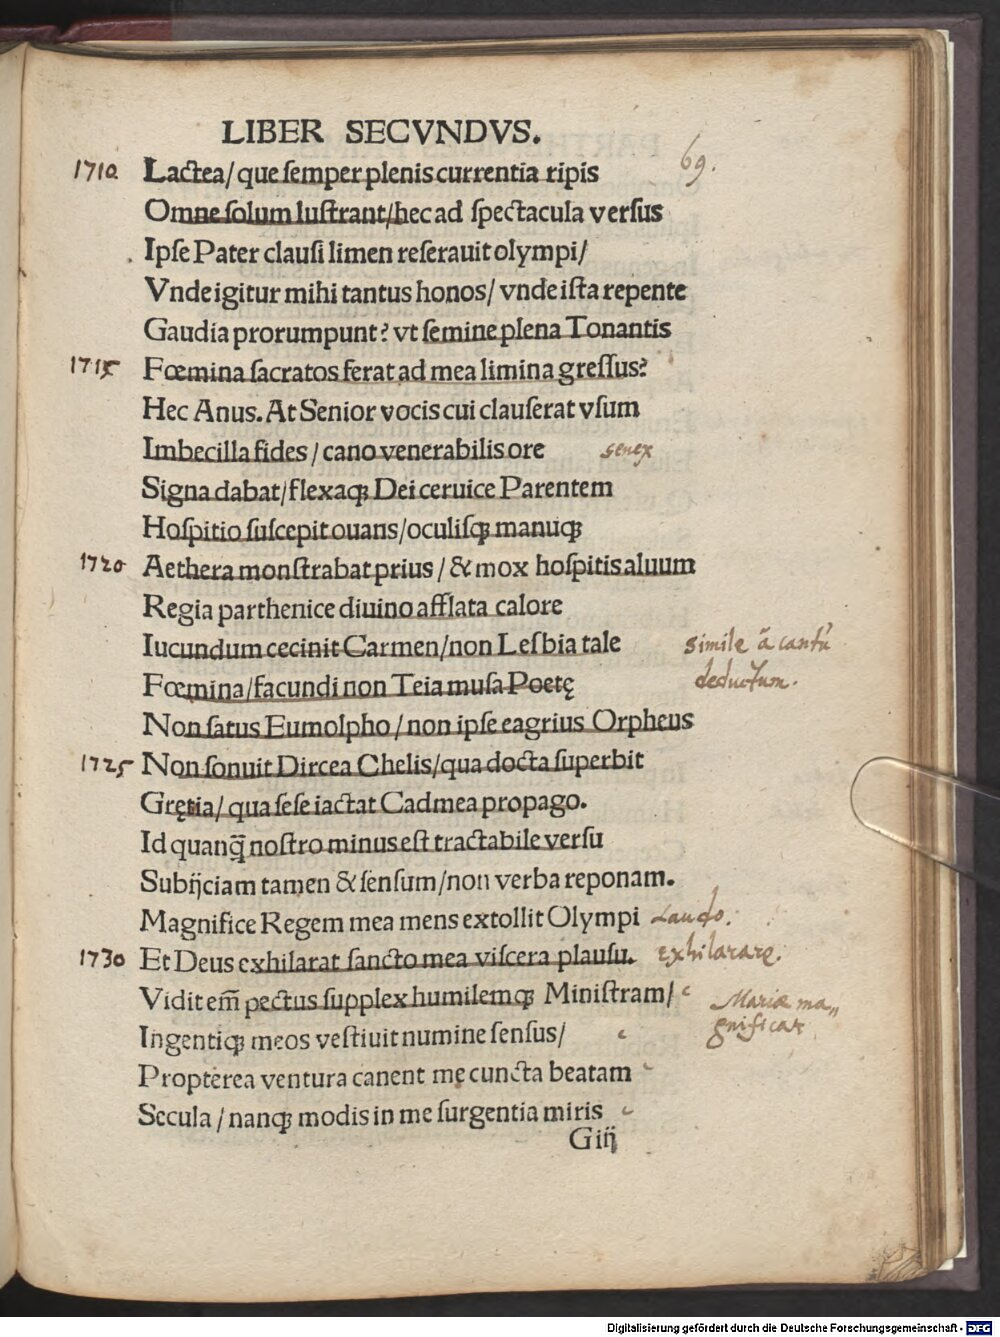 LIBER SECVNDVS.
69.
1710 Lactea/ que ſemper plenis currentia ripis
Omne ſolum luſtrant/hec ad ſpectacula verſus
Ipſe Pater clauſi limen reſerauit olympi/
Vnde igitur mihi tantus honos/ vnde iſta repente
Gaudia prorumpunt? vt ſemine plena Tonantis
1715 Fœmina ſacratos ferat ad mea limina greſſus?
Hec Anus. At Senior vocis cui clauſerat vſum
Imbecilla fides / cano venerabilis ore senex
Signa dabat/flexaqꝫ Dei ceruice Parentem
Hoſpitio ſuſcepit ouans/oculiſqꝫ manuqꝫ
1720 Aethera monſtrabat prius / & mox hoſpitis aluum
Regia parthenice diuino afflata calore
Iucundum cecinit Carmen/non Leſbia tale simile ā cantū
Fœmina/facundi non Teia muſa Poetę deductum.
Non ſatus Eumolpho / non ipſe eagrius Orpheus
1725 Non ſonuit Dircea Chelis/qua docta ſuperbit
Gręcia/ qua ſeſe iactat Cadmea propago.
Id quanq̄ noſtro minus eſt tractabile verſu
Subijciam tamen & ſenſum/non verba reponam.
Magnifice Regem mea mens extollit Olympi Laudo.
1730 Et Deus exhilarat ſancto mea viſcera plauſu. exhilarare.
Vidit em̄ pectus ſupplex humilemqꝫ Miniſtram/ Mariæ ma„
Ingentiqꝫ meos veſtiuit numine ſenſus/ gnificat
Propterea ventura canent mę cuncta beatam
Secula / nanqꝫ modis in me ſurgentia miris
Giij
Digitalisierung gefördert durch die Deutsche Forschungsgemeinschaft - DFG